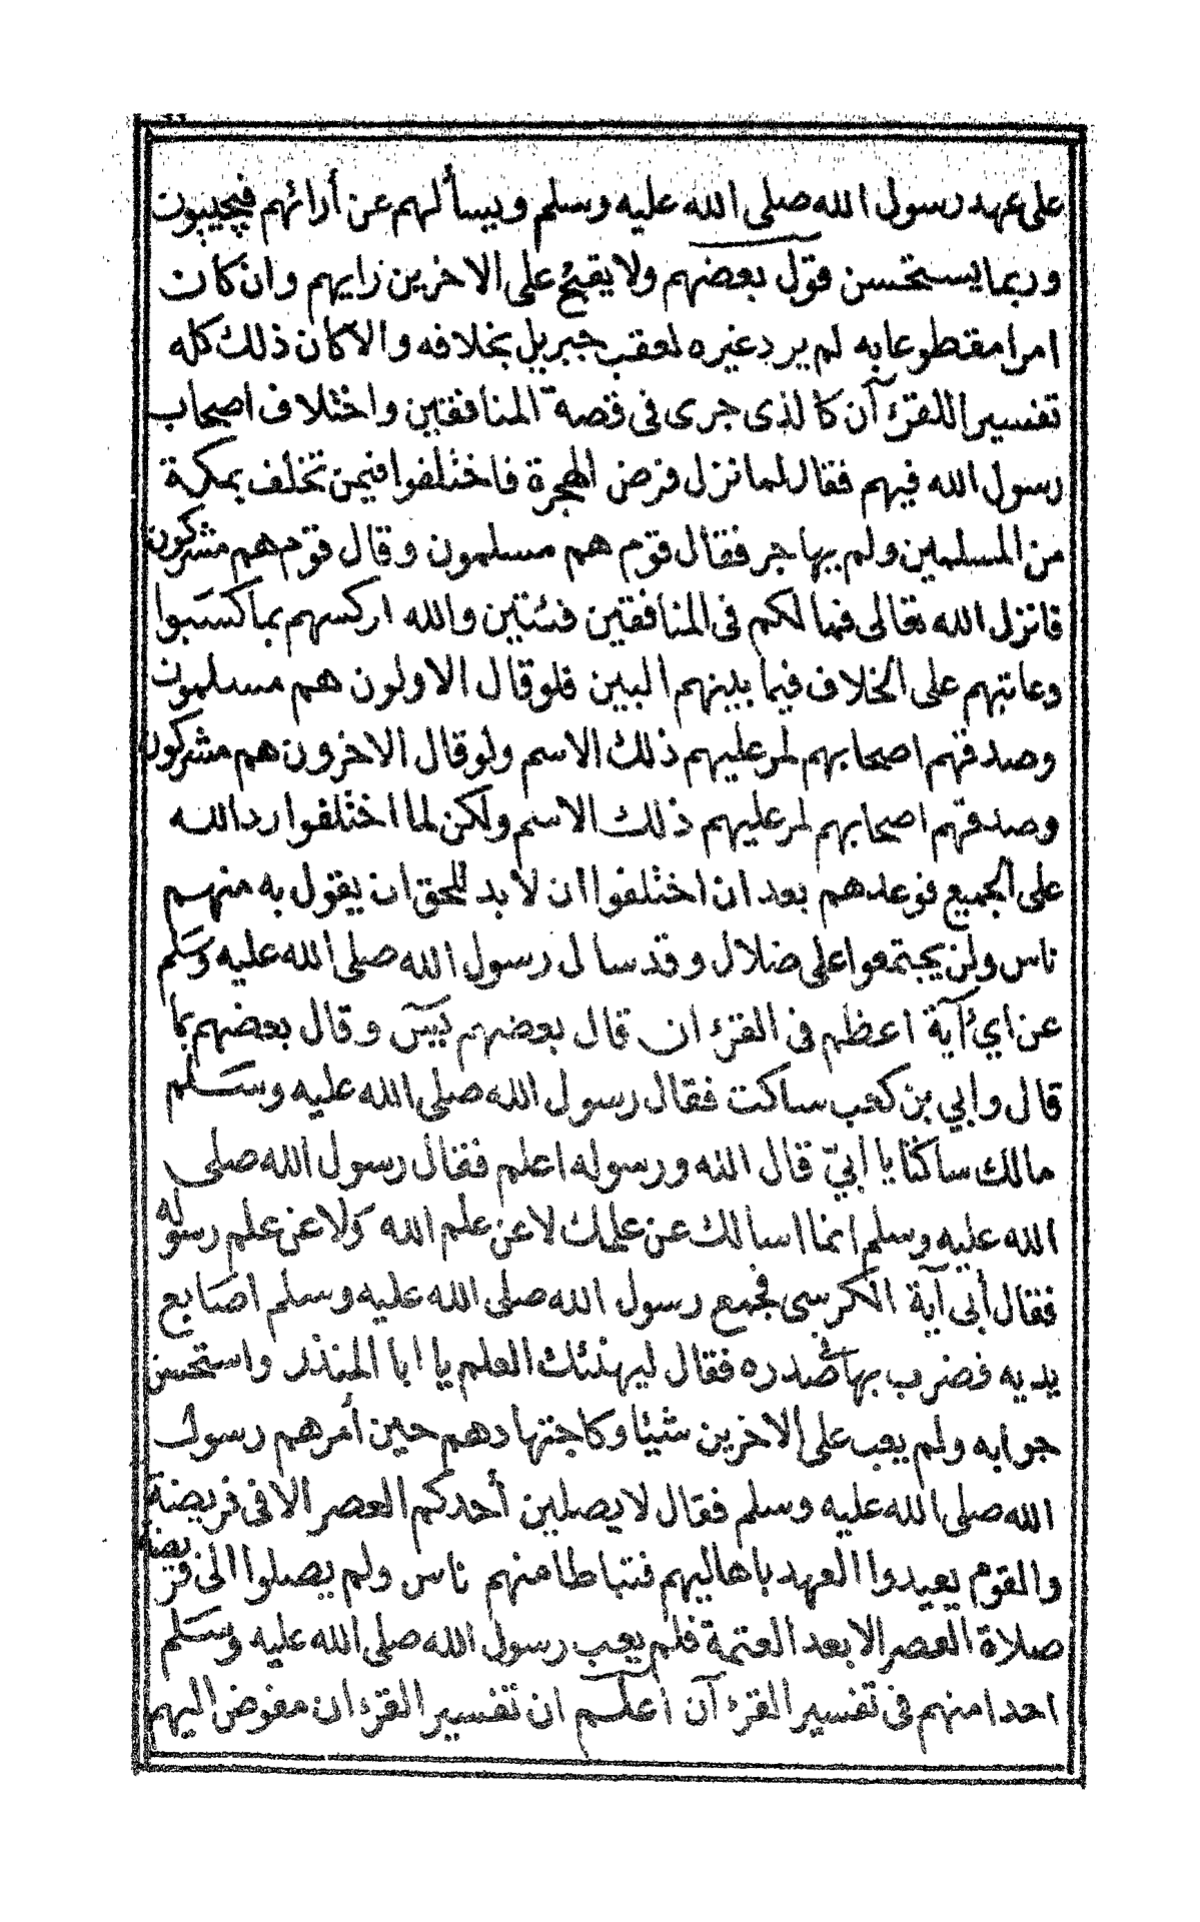 على عهد رسول الله صلى الله عليه وسلم ويسألهم عن أرائهم فيجيبون
وربما يستحسن قول بعضهم ولا يقبح على الاخرين رايهم وان كان
امرا مقطوعا به لم يرد غيره لعقب جبريل بخلافه والا كان ذلك كله
تفسيرا للقرءآن كالذى جرى فى قصة المنافقين واختلاف اصحاب
رسول الله فيهم فقال لما نزل فرض الهجرة فاختلفوا فيمن تخلف بمكة
من المسلمين ولم يهاجر فقال قوم هم مسلمون وقال قوم هم مشركون
فانزل الله تعالى فما لكم فى المنافقين فئتين والله اركسهم بما كسبوا
وعاتبهم على الخلاف فيما بينهم البين فلو قال الاولون هم مسلمون
وصدقهم اصحابهم لمر عليهم ذلك الاسم ولو قال الاخرون هم مشركون
وصدقهم اصحابهم لمر عليهم ذلك الاسم ولكن لما اختلفوا رد الله
على الجميع فوعدهم بعد ان اختلفوا ان لا بد للحق ان يقول به منهم
ناس ولن يجتمعوا على ضلال وقد سال رسول الله صلى الله عليه وسلم
عن اي آية اعظم فى القرءان قال بعضهم يس وقال بعضهم بما
قال وابي بن كعب ساكت فقال رسول الله صلى الله عليه وسلم
مالك ساكتا يا ابيّ قال الله ورسوله اعلم فقال رسول الله صلى
الله عليه وسلم انما اسالك عن علمك لا عن علم الله ولا عن علم رسوله
فقال أبى آية الكرسى فجمع رسول الله صلى الله عليه وسلم اصابع
يديه فضرب بها صدره فقال ليهنئك العلم يا ابا المنذر واستحسن
جوابه ولم يعب على الاخرين شيئا وكاجتهادهم حين أمرهم رسول
الله صلى الله عليه وسلم فقال لا يصلين أحدكم العصر الا فى فريضة
والقوم بعيدوا العهد باهاليهم فتباطا منهم ناس ولم يصلوا الى فريضة
صلاة العصر الا بعد العتمة فلم يعب رسول الله صلى الله عليه وسلم
احدا منهم فى تفسير القرءآن أعلم ان تفسير القرءان مفوض اليهم